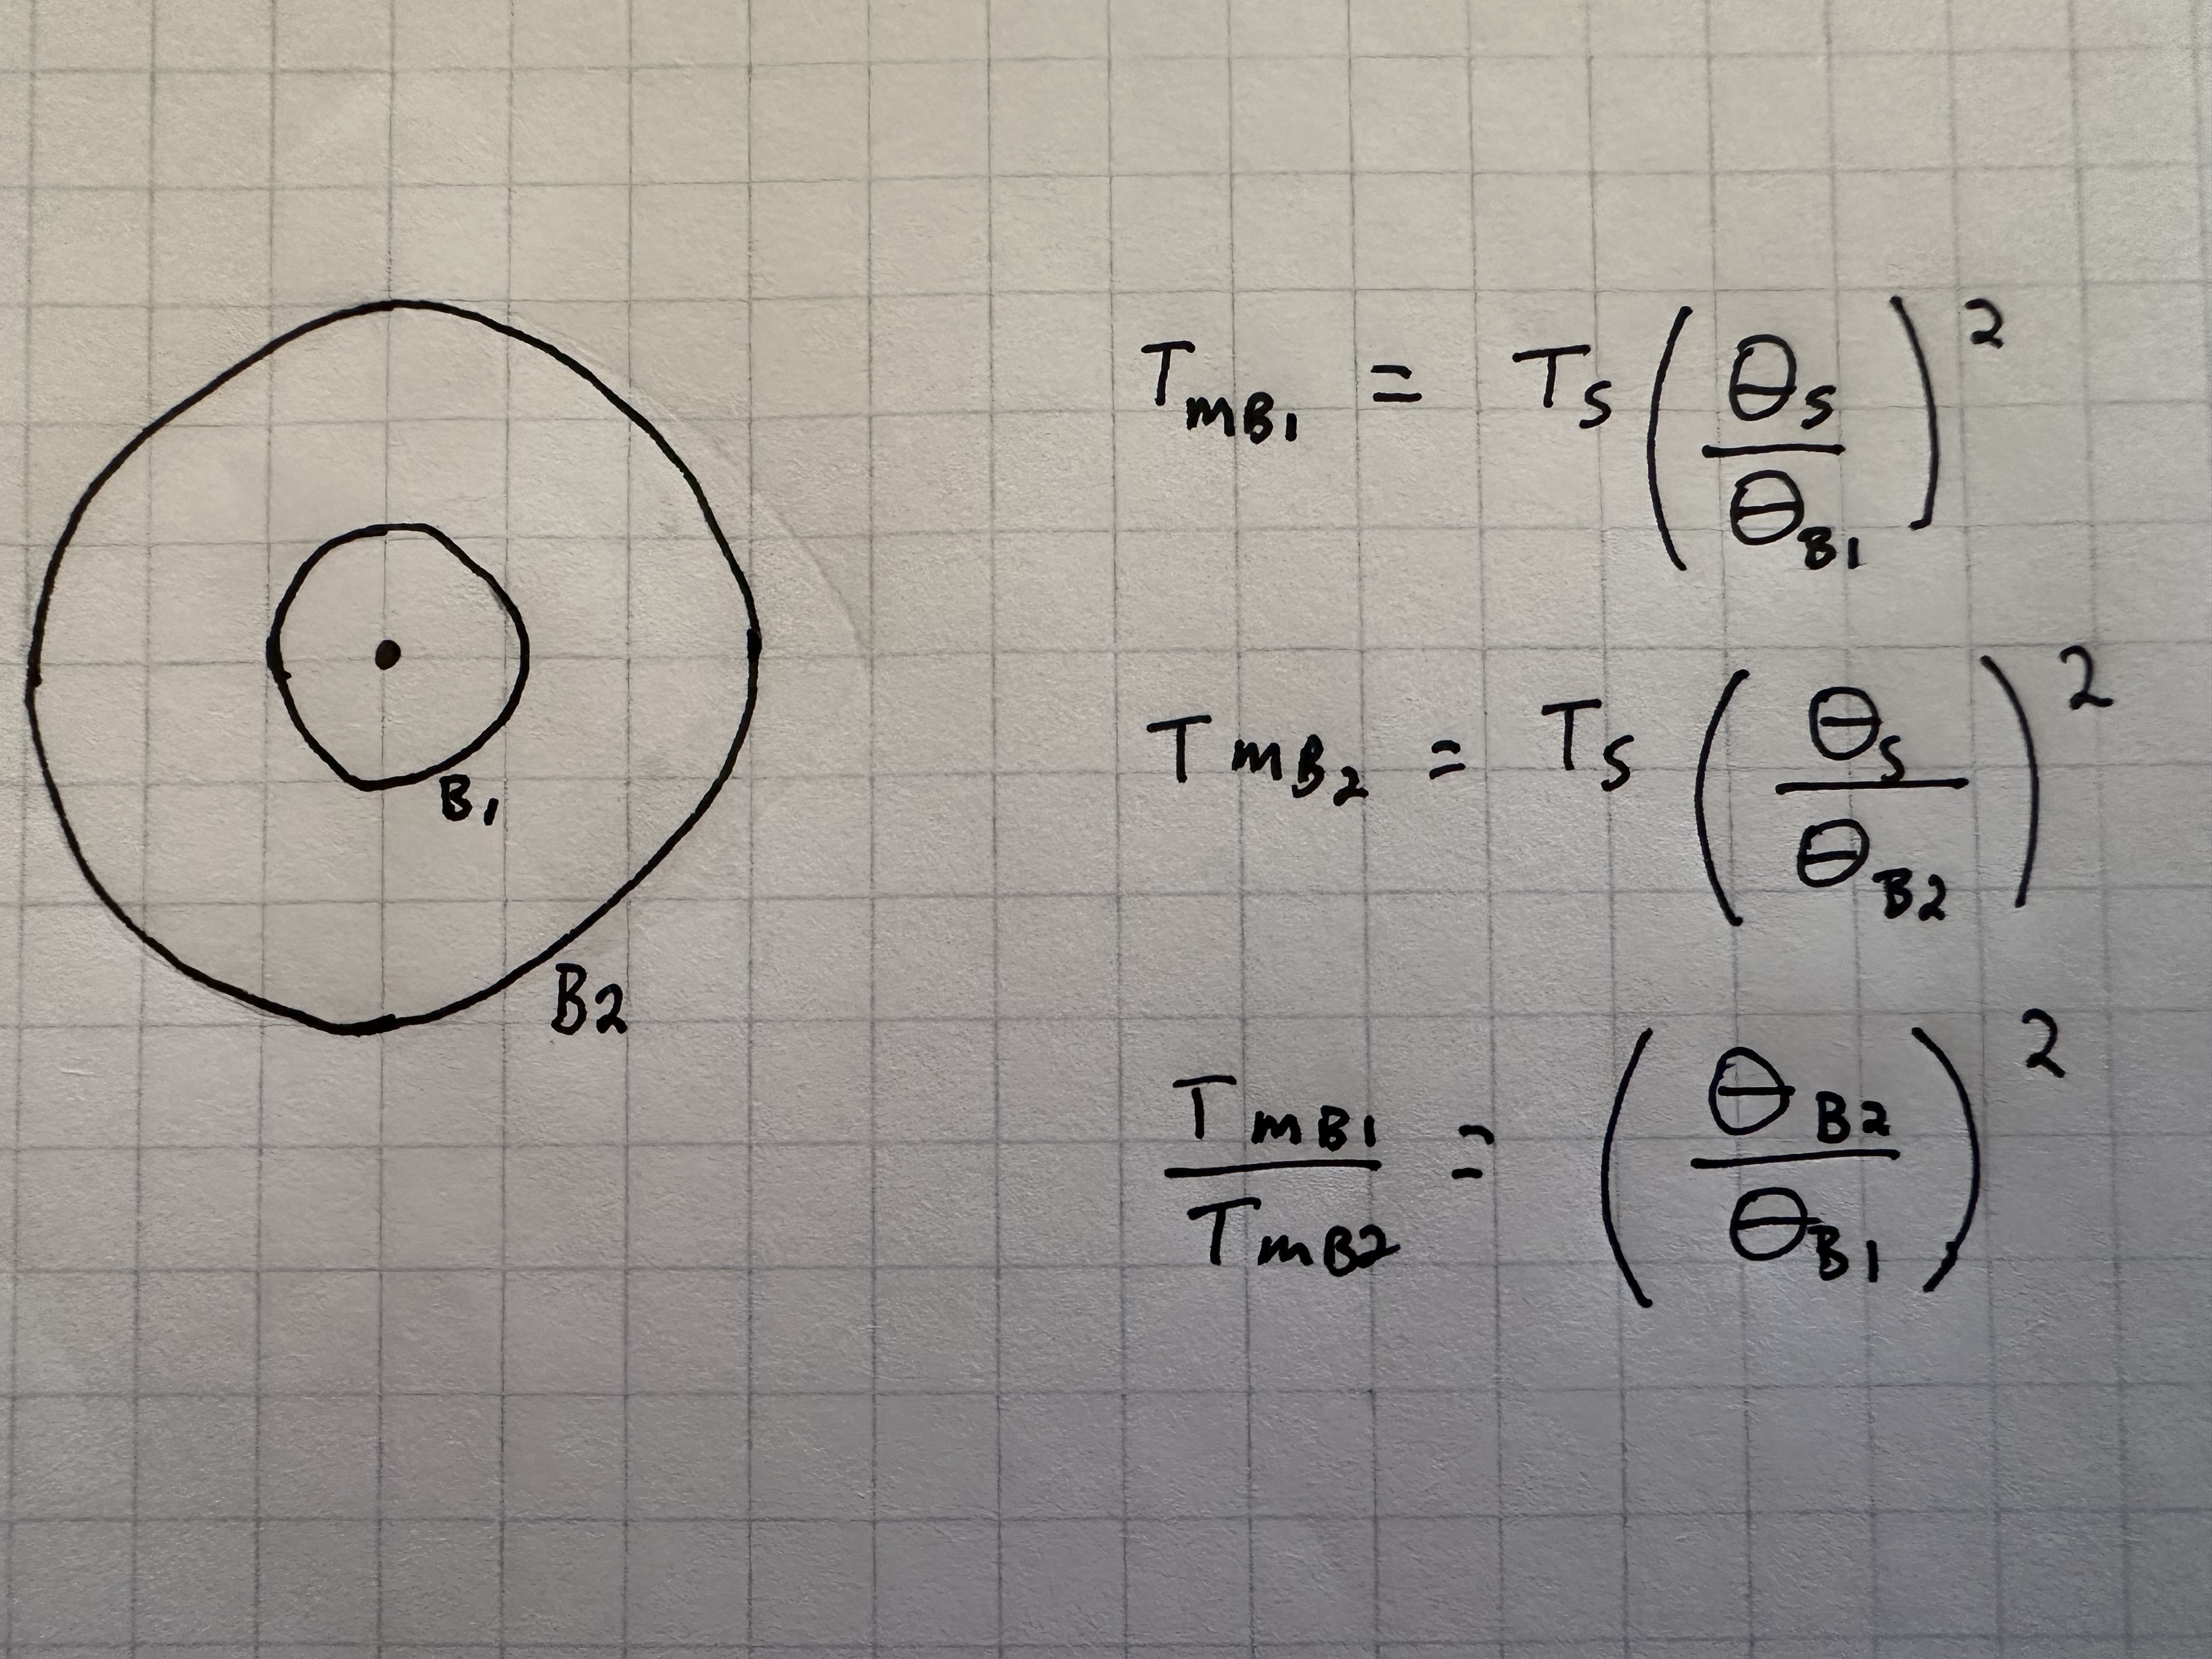 B₁
B2
T_mB₁ = T_S (θ_S / θ_B1)²
T_mB₂ = T_S (θ_S / θ_B2)²
T_mB1 / T_mB2 = (θ_B2 / θ_B1)²